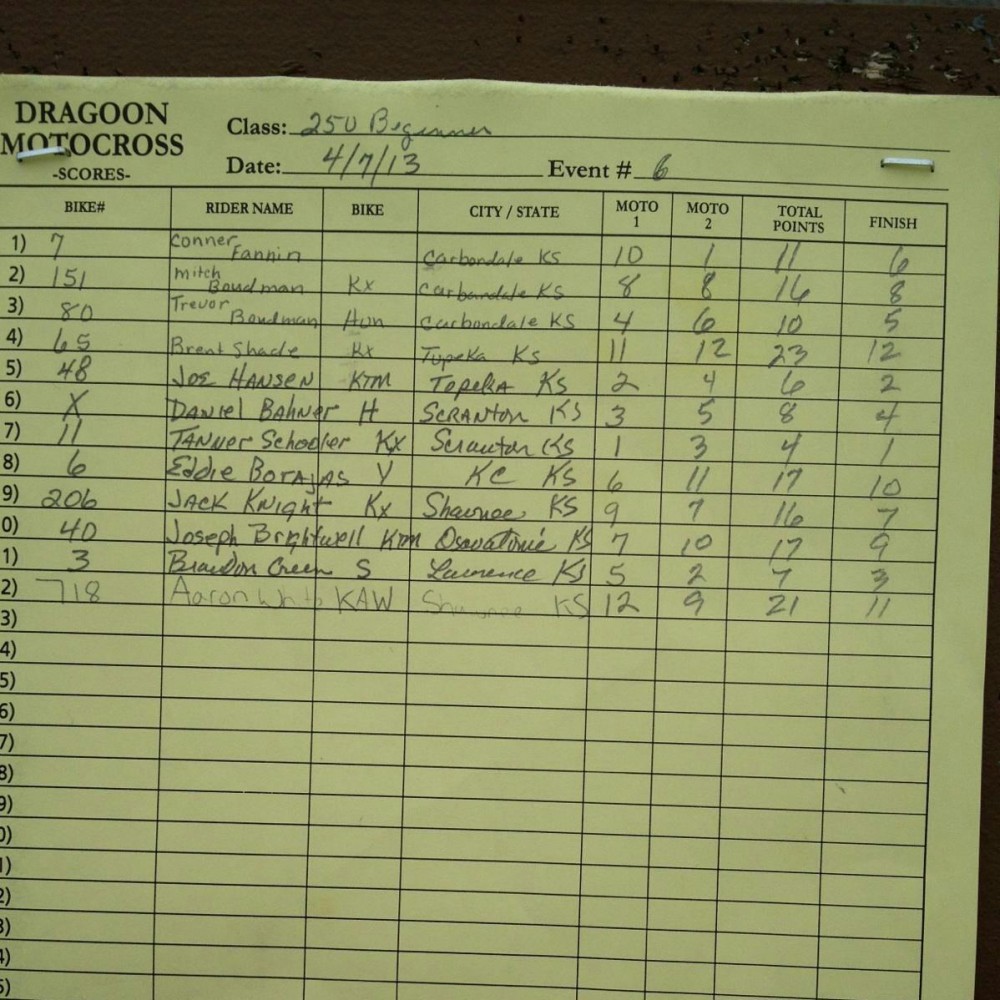 DRAGOON
MOTOCROSS
-SCORES-
Class: 250 Beginner
Date: 4/7/13 Event # 6
BIKE# RIDER NAME BIKE CITY / STATE MOTO 1 MOTO 2 TOTAL POINTS FINISH
1) 7 Conner Fannin Carbondale KS 10 1 11 6
2) 151 Mitch Boudman Kx Carbondale KS 8 8 16 8
3) 80 Trevor Boudman Hon Carbondale KS 4 6 10 5
4) 65 Brent Shade Kx Topeka KS 11 12 23 12
5) 48 JOE HANSEN KTM Topeka KS 2 4 6 2
6) X DANIEL BAHNER H SCRANTON KS 3 5 8 4
7) 11 TANNER Schooler Kx Scranton KS 1 3 4 1
8) 6 Eddie BORAJAS Y KC KS 6 11 17 10
9) 206 JACK KNight Kx Shawnee KS 9 7 16 7
0) 40 Joseph Brightwell KTM Osawatomie KS 7 10 17 9
1) 3 Brandon Green S Lawrence KS 5 2 7 3
2) 718 Aaron White KAW Shawnee KS 12 9 21 11
3)
4)
5)
6)
7)
8)
9)
0)
1)
2)
3)
4)
5)